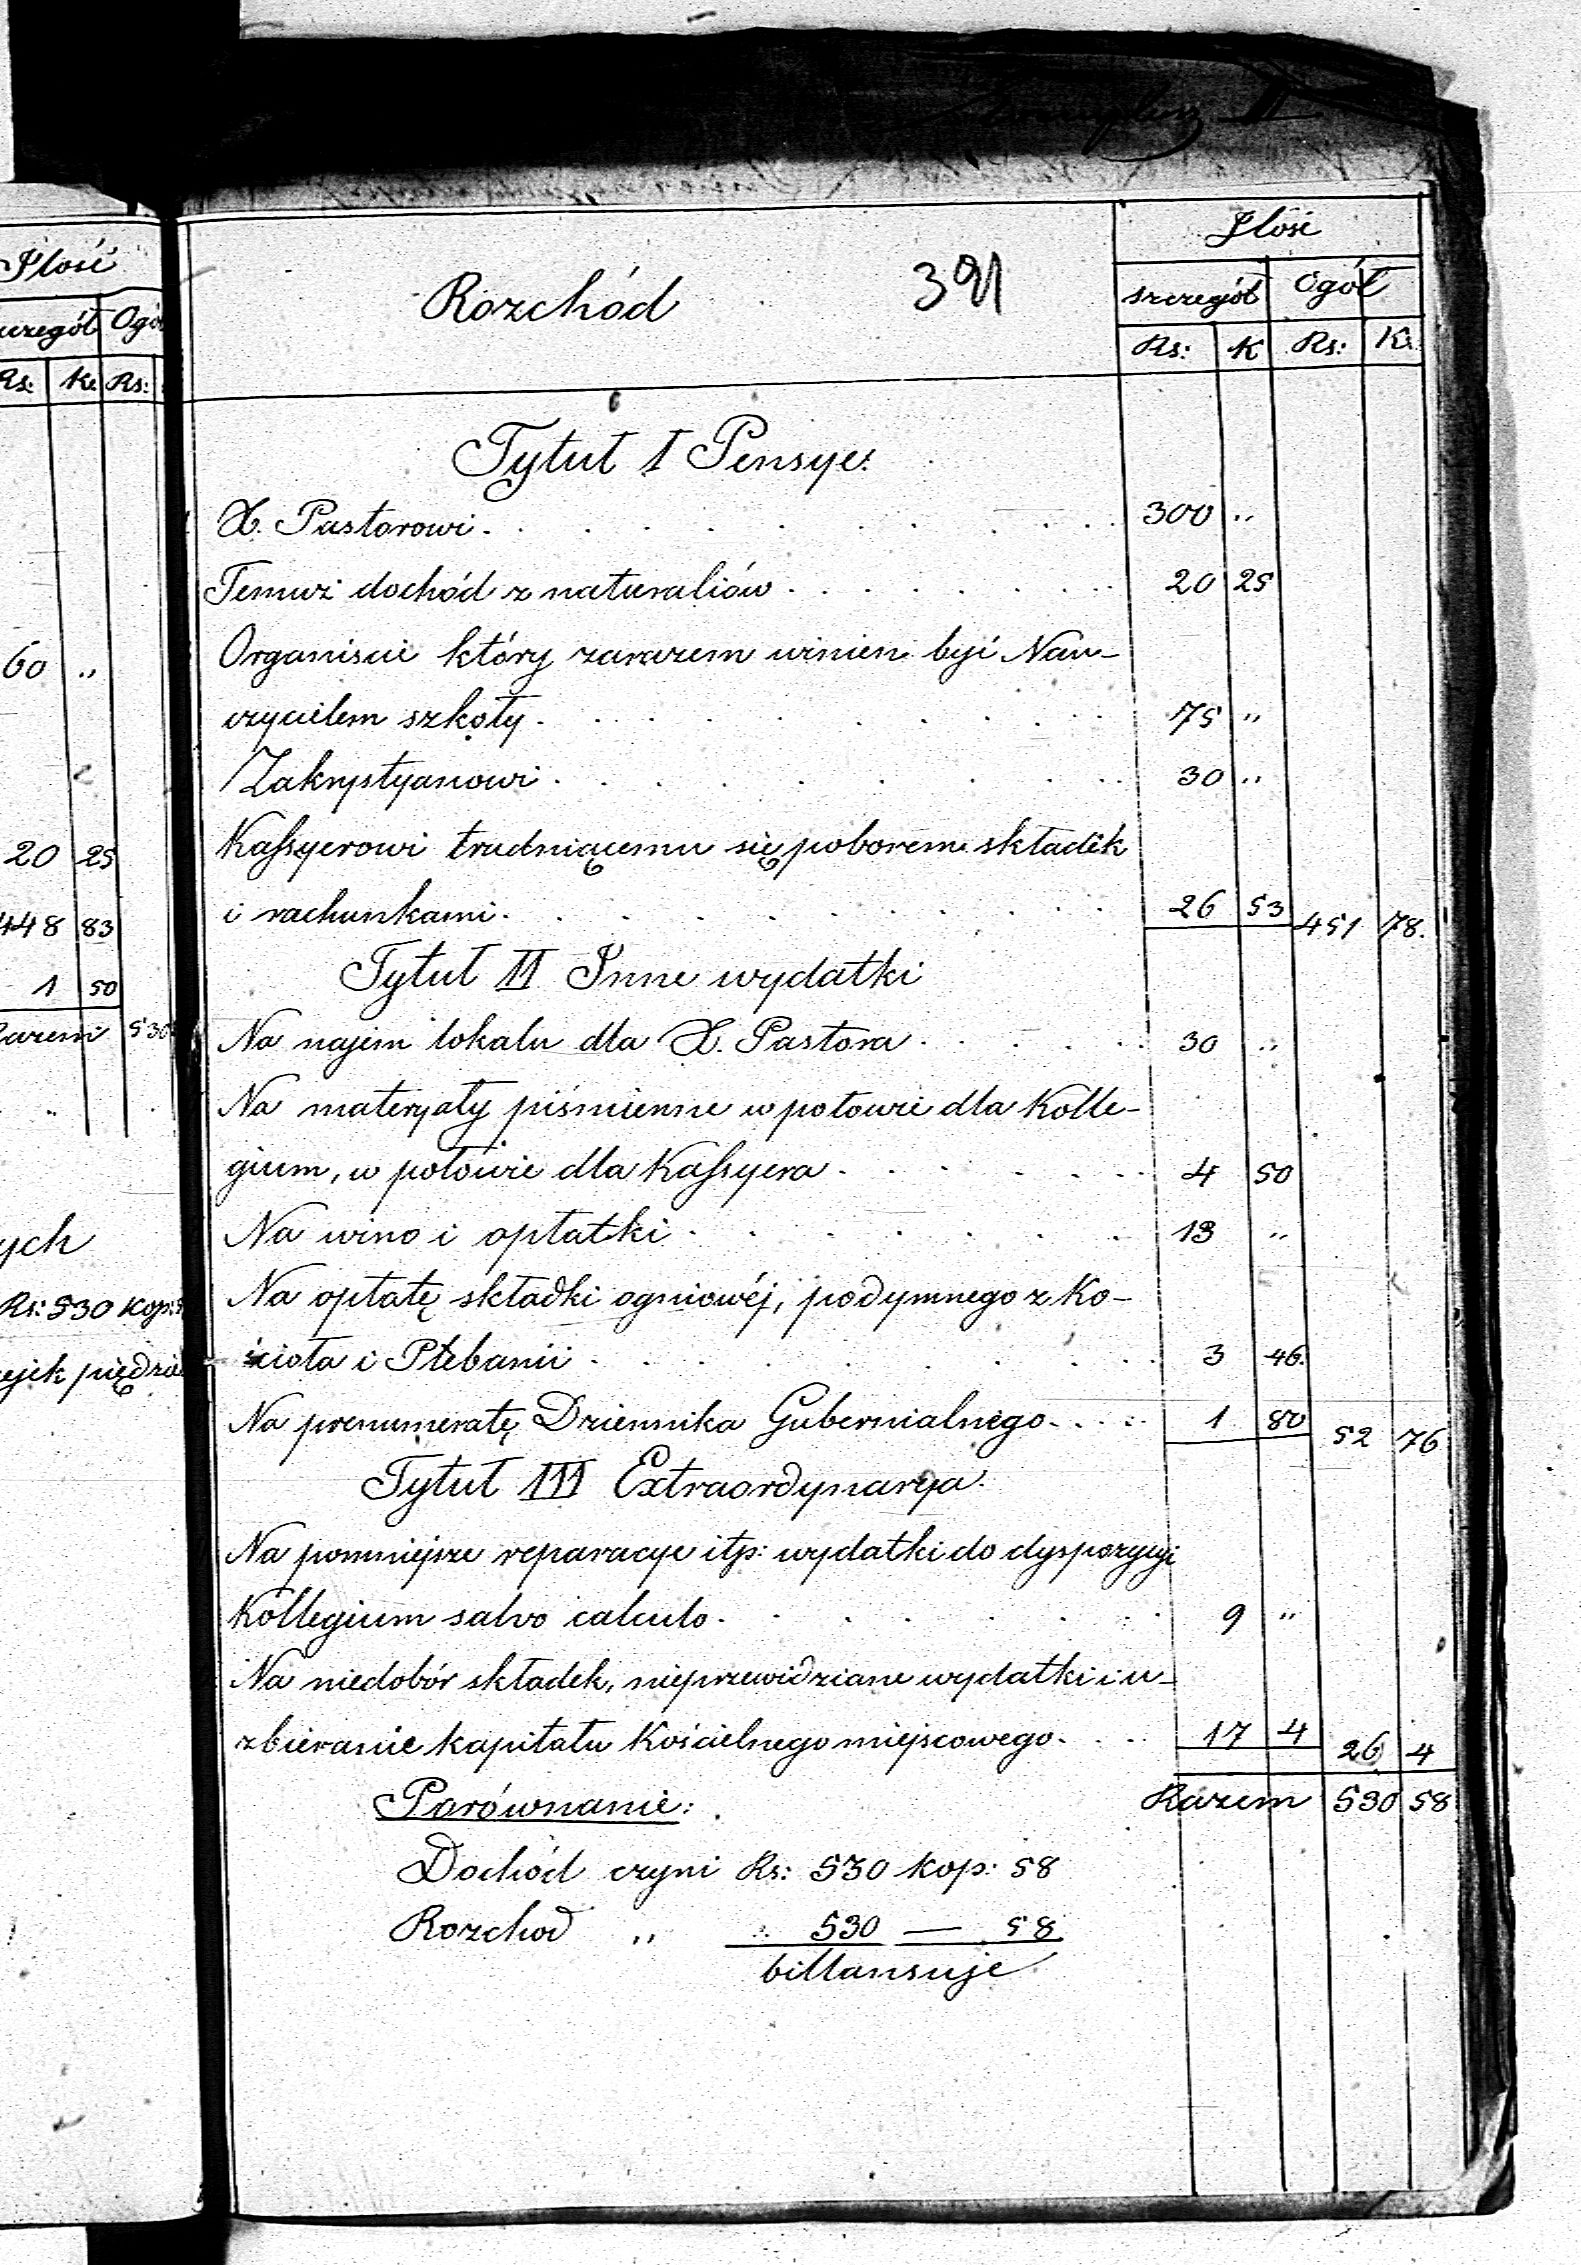 Ilość
szczegół Ogó
Rs: K. Rs:
60 "
20 25
448 83
1 50
Razem 530
"
ych
Rs: 530 kop:
ejek pięćdzie
Ilość
Rozchód 391
szczegół Ogół
Rs: K Rs: K.
Tytuł I Pensye:
X. Pastorowi . . . . . . . . . 300 "
Temuż dochód z naturaliów . . . . . . . 20 25
Organiście który zarazem winien być Nau-
czycielem szkoły . . . . . . . . . 75 "
Zakrystyanowi . . . . . . . . . 30 "
Kassyerowi trudniącemu się poborem składek
i rachunkami . . . . . . . . . 26 53 451 78.
Tytuł II Inne wydatki
Na najem lokalu dla X. Pastora . . . . . 30 "
Na materyały piśmienne w połowie dla Kolle-
gium, w połowie dla Kassyera . . . . . . 4 50
Na wino i opłatki . . . . . . . . 13 "
Na opłatę składki ogniowéj, podymnego z Ko-
ścioła i Plebanii . . . . . . . . . 3 46.
Na prenumeratę Dziennika Gubernialnego . . . . 1 80 52 76
Tytuł III Extraordynarya.
Na pomniejsze reparacye itp: wydatki do dyspozycyi
Kollegium salvo calculo . . . . . . . . 9 "
Na niedobór składek, nieprzewidziane wydatki i u-
zbieranie kapitału Kościelnego miejscowego . . . 17 4 26 4
Porównanie: Razem 530 58
Dochód czyni Rs: 530 kop: 58
Rozchod " " 530 — 58
billansuje